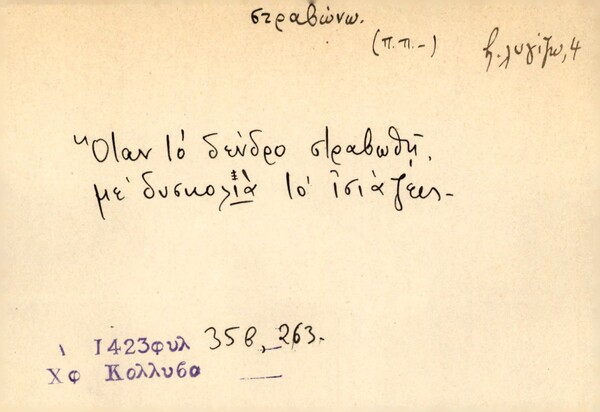 στραβώνω.
(π.π.-)
λυγίζω, 4
"Οταν τό δένδρο στραβωθῇ,
μέ δυσκολιὰ τό ἰσιάζεις-
1423φυλ 35β, 263.
Χφ Κολλυβα